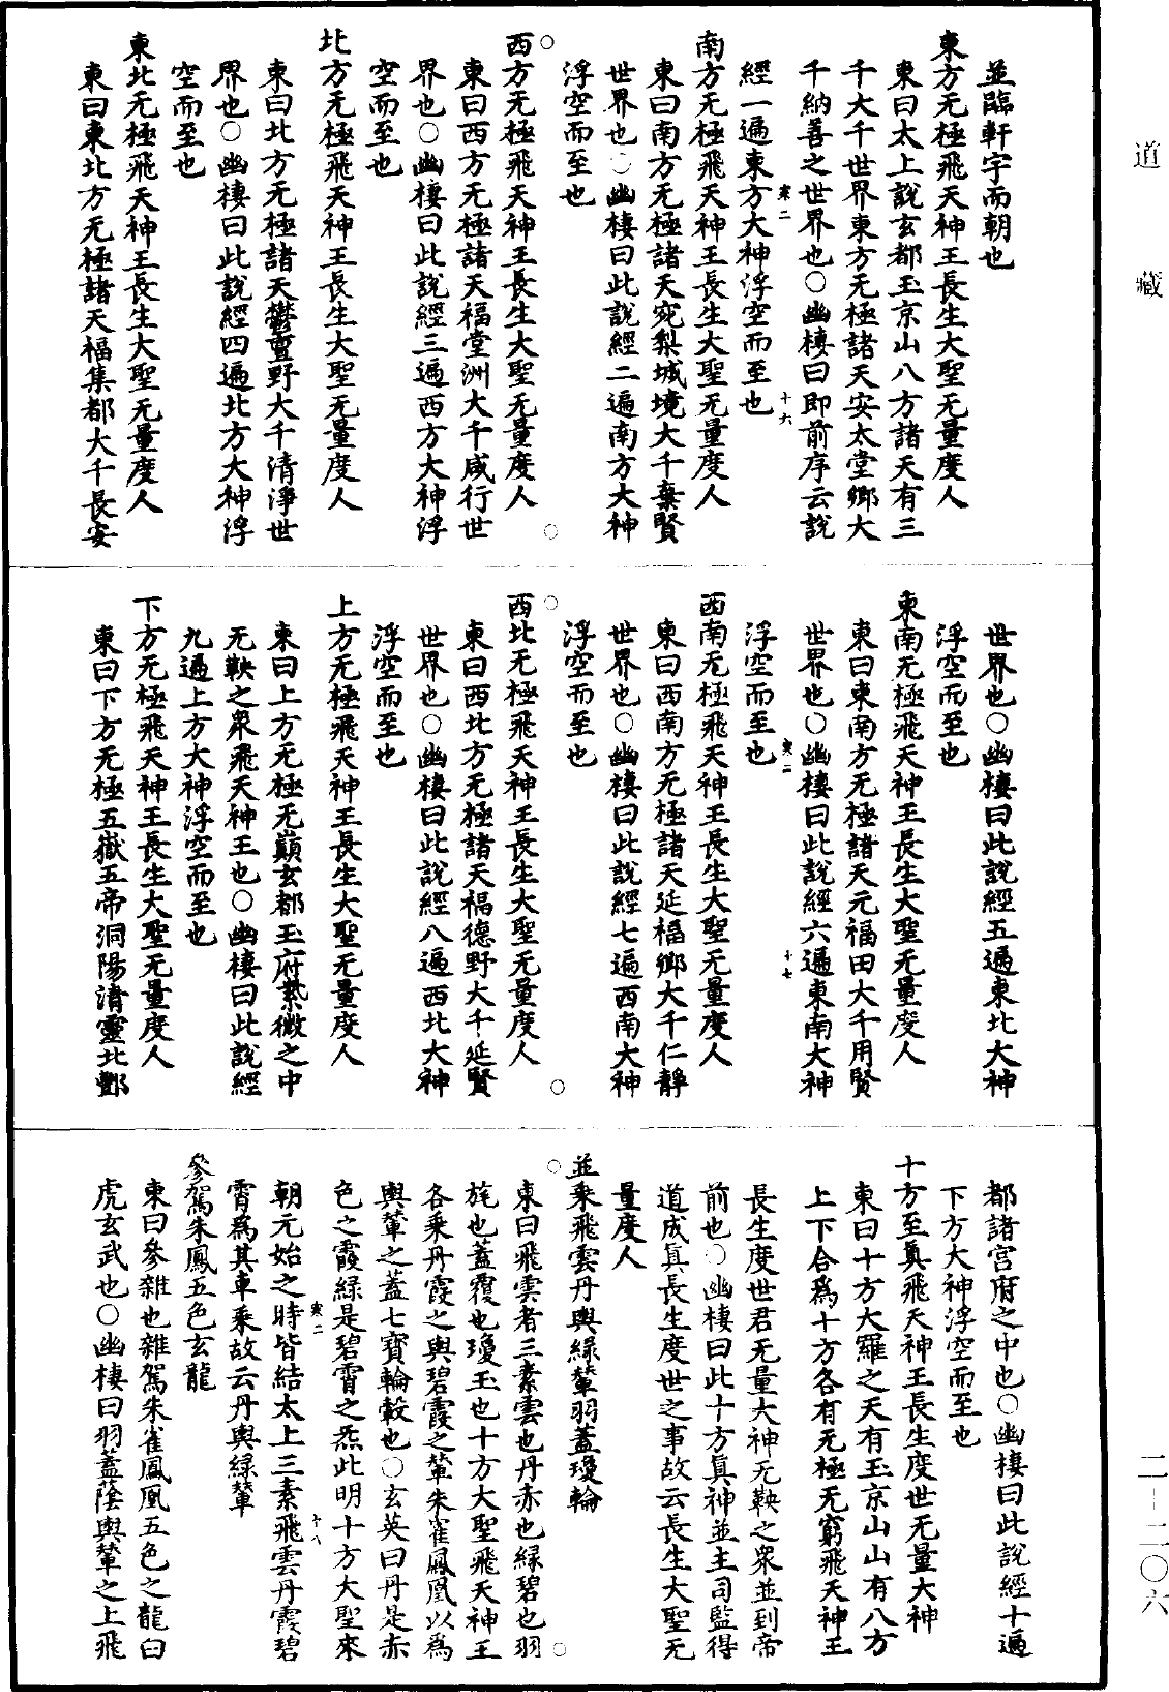 道藏
並臨軒宇而朝也
東方无極飛天神王長生大聖无量度人
東曰太上說玄都玉京山八方諸天有三
千大千世界東方无極諸天安太堂鄉大
千納善之世界也○幽棲曰即前序云說
經一遍東方大神浮空而至也
寒二
十六
南方无極飛天神王長生大聖无量度人
東曰南方无極諸天宛梨城境大千棄賢
世界也○幽棲曰此說經二遍南方大神
浮空而至也
西方无極飛天神王長生大聖无量度人
東曰西方无極諸天福堂洲大千咸行世
界也○幽棲曰此說經三遍西方大神浮
空而至也
北方无極飛天神王長生大聖无量度人
東曰北方无極諸天鬱亶野大千清淨世
界也○幽棲曰此說經四遍北方大神浮
空而至也
東北无極飛天神王長生大聖无量度人
東曰東北方无極諸天福集都大千長安
世界也○幽棲曰此說經五遍東北大神
浮空而至也
東南无極飛天神王長生大聖无量度人
東曰東南方无極諸天元福田大千用賢
世界也○幽棲曰此說經六遍東南大神
浮空而至也
寒二
十七
西南无極飛天神王長生大聖无量度人
東曰西南方无極諸天延福鄉大千仁靜
世界也○幽棲曰此說經七遍西南大神
浮空而至也
西北无極飛天神王長生大聖无量度人
東曰西北方无極諸天福德野大千延賢
世界也○幽棲曰此說經八遍西北大神
浮空而至也
上方无極飛天神王長生大聖无量度人
東曰上方无極无巔玄都玉府紫微之中
无鞅之衆飛天神王也○幽棲曰此說經
九遍上方大神浮空而至也
下方无極飛天神王長生大聖无量度人
東曰下方无極五嶽五帝洞陽清靈北酆
都諸宮府之中也○幽棲曰此說經十遍
下方大神浮空而至也
十方至眞飛天神王長生度世无量大神
東曰十方大羅之天有玉京山山有八方
上下合爲十方各有无極无窮飛天神王
長生度世君无量大神无鞅之衆並到帝
前也○幽棲曰此十方眞神並主司監得
道成眞長生度世之事故云長生大聖无
量度人
並乘飛雲丹輿緑輦羽蓋瓊輪
東曰飛雲者三素雲也丹赤也緑碧也羽
旄也蓋覆也瓊玉也十方大聖飛天神王
各乘丹霞之輿碧霞之輦朱雀鳳凰以爲
輿輦之蓋七寶輪轂也○玄英曰丹是赤
色之霞緑是碧霄之炁此明十方大聖來
朝元始之時皆結太上三素飛雲丹霞碧
寒二
十八
霄爲其車乘故云丹輿緑輦
參駕朱鳳五色玄龍
東曰參雜也雜駕朱雀鳳凰五色之龍白
虎玄武也○幽棲曰羽蓋蔭輿輦之上飛
二－二〇六